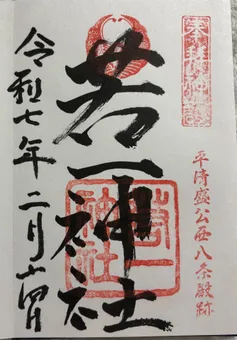 平清盛公西八条殿跡
若一神社
若一神社
令和七年二月十四日